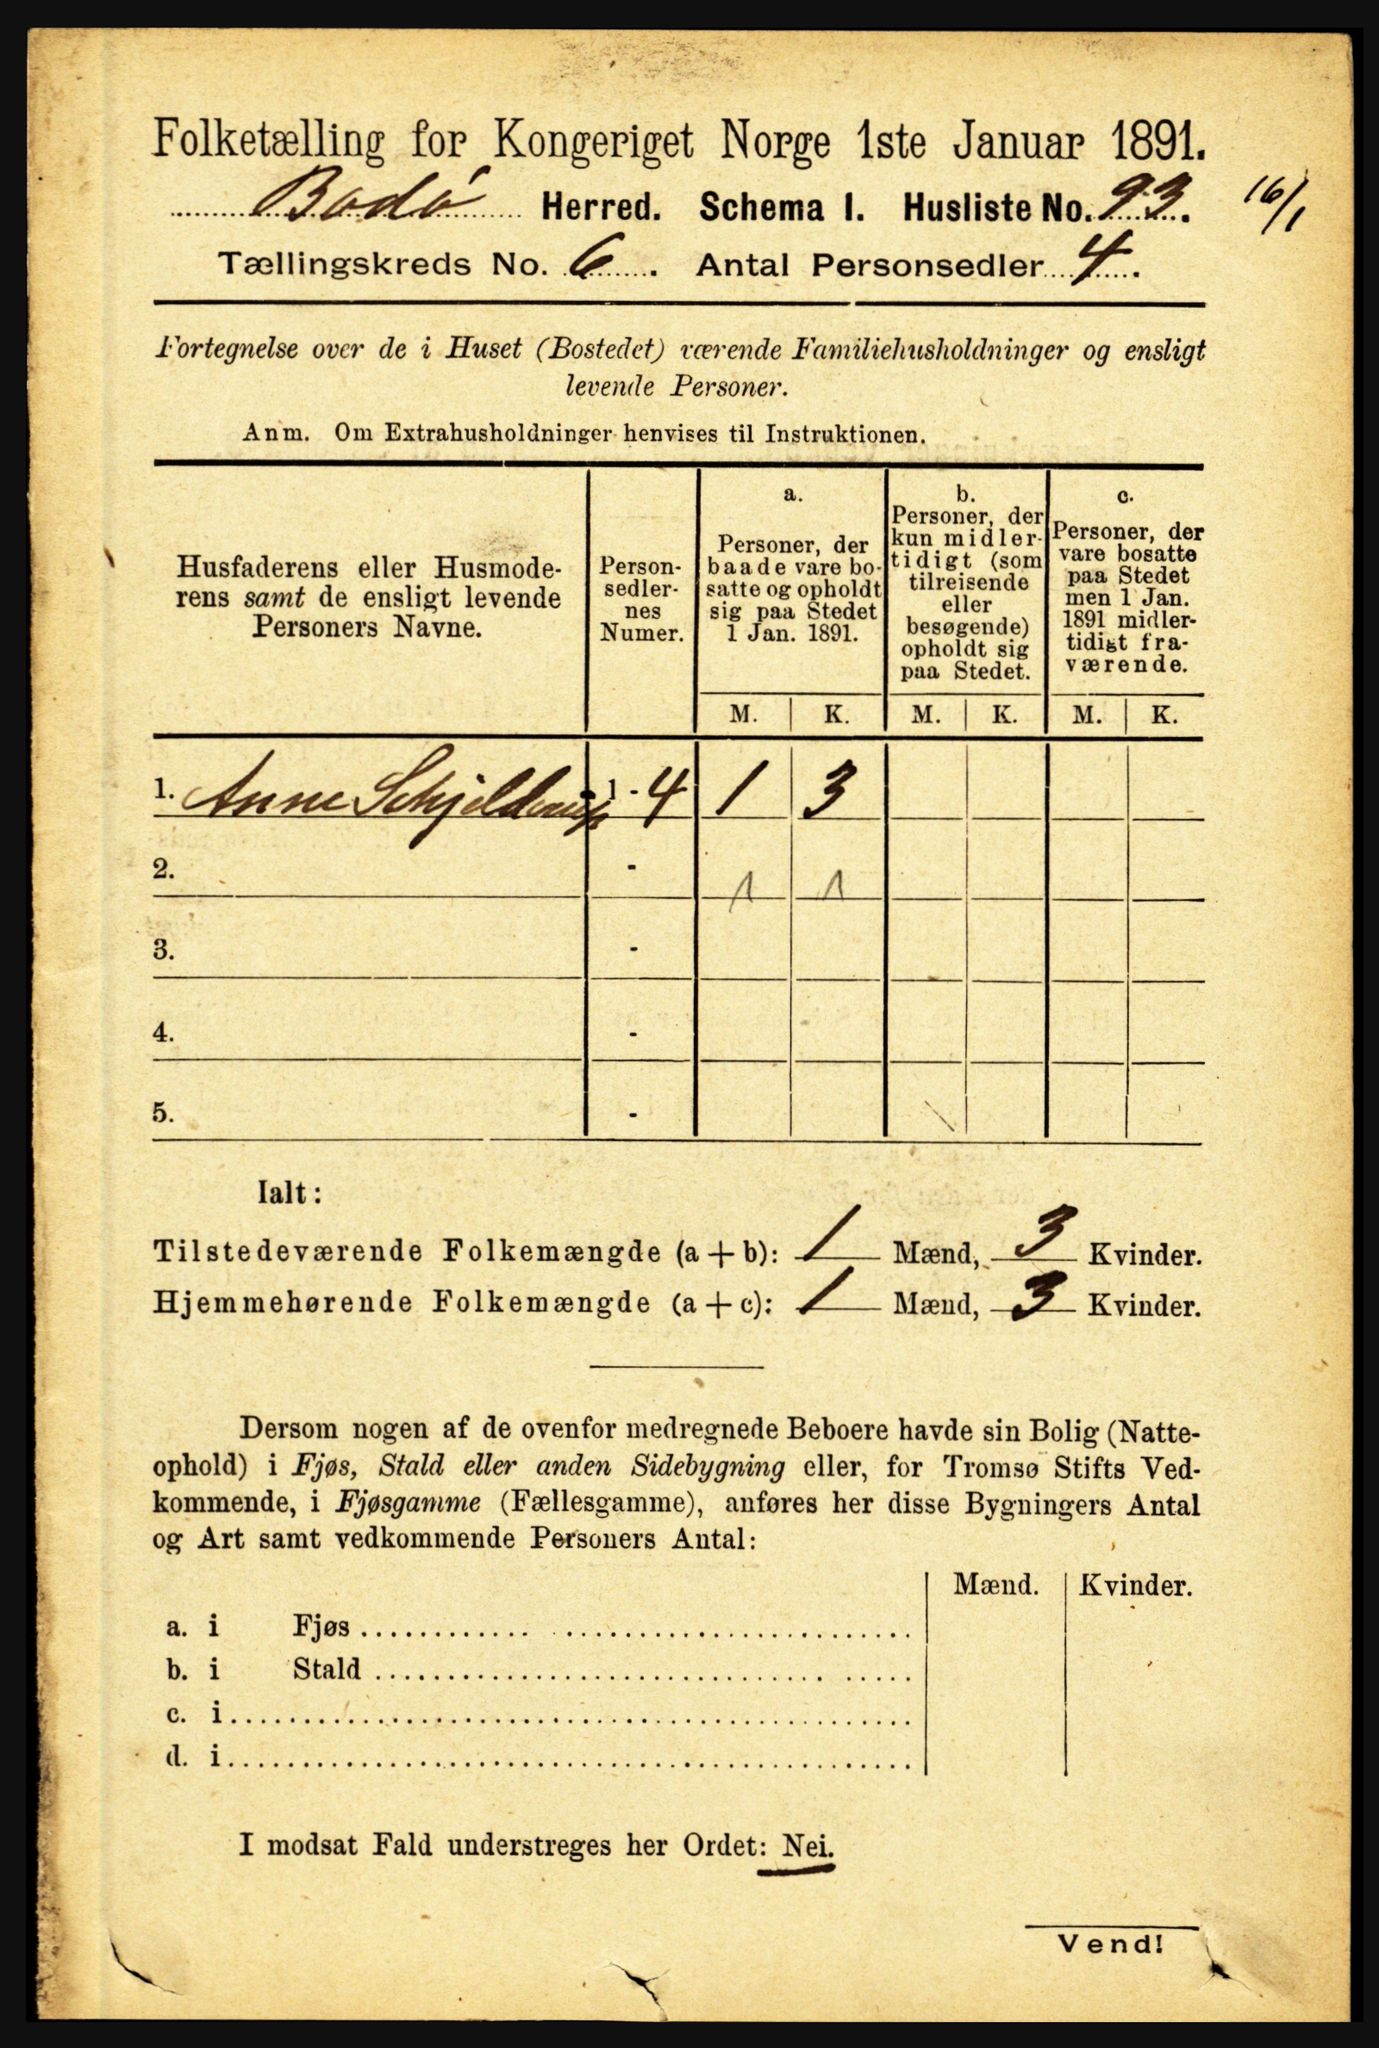 Folketælling for Kongeriget Norge 1ste Januar 1891.
Bodø Herred. Schema I. Husliste No. 93. 16/1
Tællingskreds No. 6. Antal Personsedler 4.
Fortegnelse over de i Huset (Bostedet) værende Familiehusholdninger og ensligt
levende Personer.
Anm. Om Extrahusholdninger henvises til Instruktionen.
Husfaderens eller Husmode-
rens samt de ensligt levende
Personers Navne.
Person-
sedler-
nes
Numer.
a.
Personer, der
baade vare bo-
satte og opholdt
sig paa Stedet
1 Jan. 1891.
b.
Personer, der
kun midler-
tidigt (som
tilreisende
eller
besøgende)
opholdt sig
paa Stedet.
c.
Personer, der
vare bosatte
paa Stedet
men 1 Jan.
1891 midler-
tidigt fra-
værende.
M. K. M. K. M. K.
1. Anne Schjelderup 1 - 4 1 3
2. - 1 1
3. -
4. -
5. -
Ialt:
Tilstedeværende Folkemængde (a + b): 1 Mænd, 3 Kvinder.
Hjemmehørende Folkemængde (a + c): 1 Mænd, 3 Kvinder.
Dersom nogen af de ovenfor medregnede Beboere havde sin Bolig (Natte-
ophold) i Fjøs, Stald eller anden Sidebygning eller, for Tromsø Stifts Ved-
kommende, i Fjøsgamme (Fællesgamme), anføres her disse Bygningers Antal
og Art samt vedkommende Personers Antal:
Mænd. Kvinder.
a. i Fjøs
b. i Stald
c. i
d. i
I modsat Fald understreges her Ordet: Nei.
Vend!